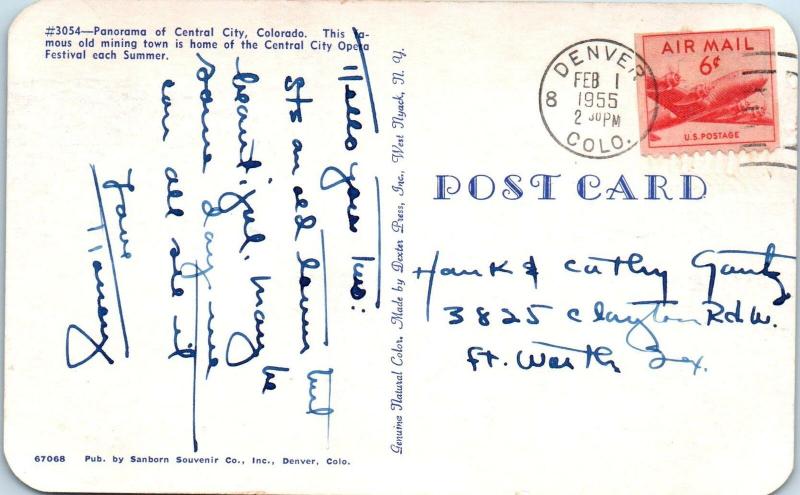 #3054—Panorama of Central City, Colorado. This fa-
mous old mining town is home of the Central City Opera
Festival each Summer.
Hello you two:
Its an old town but
beautiful. Maybe
some day we
can all see it
Love
67068 Pub. by Sanborn Souvenir Co., Inc., Denver, Colo.
Genuine Natural Color. Made by Dexter Press, Inc., West Nyack, N. Y.
DENVER
COLO.
FEB 1
1955
2 30 PM
8
AIR MAIL
6¢
U.S. POSTAGE
POST CARD
Hank & Cathy Gantz
3825 Clayton Rd. W.
Ft. Worth Tex.